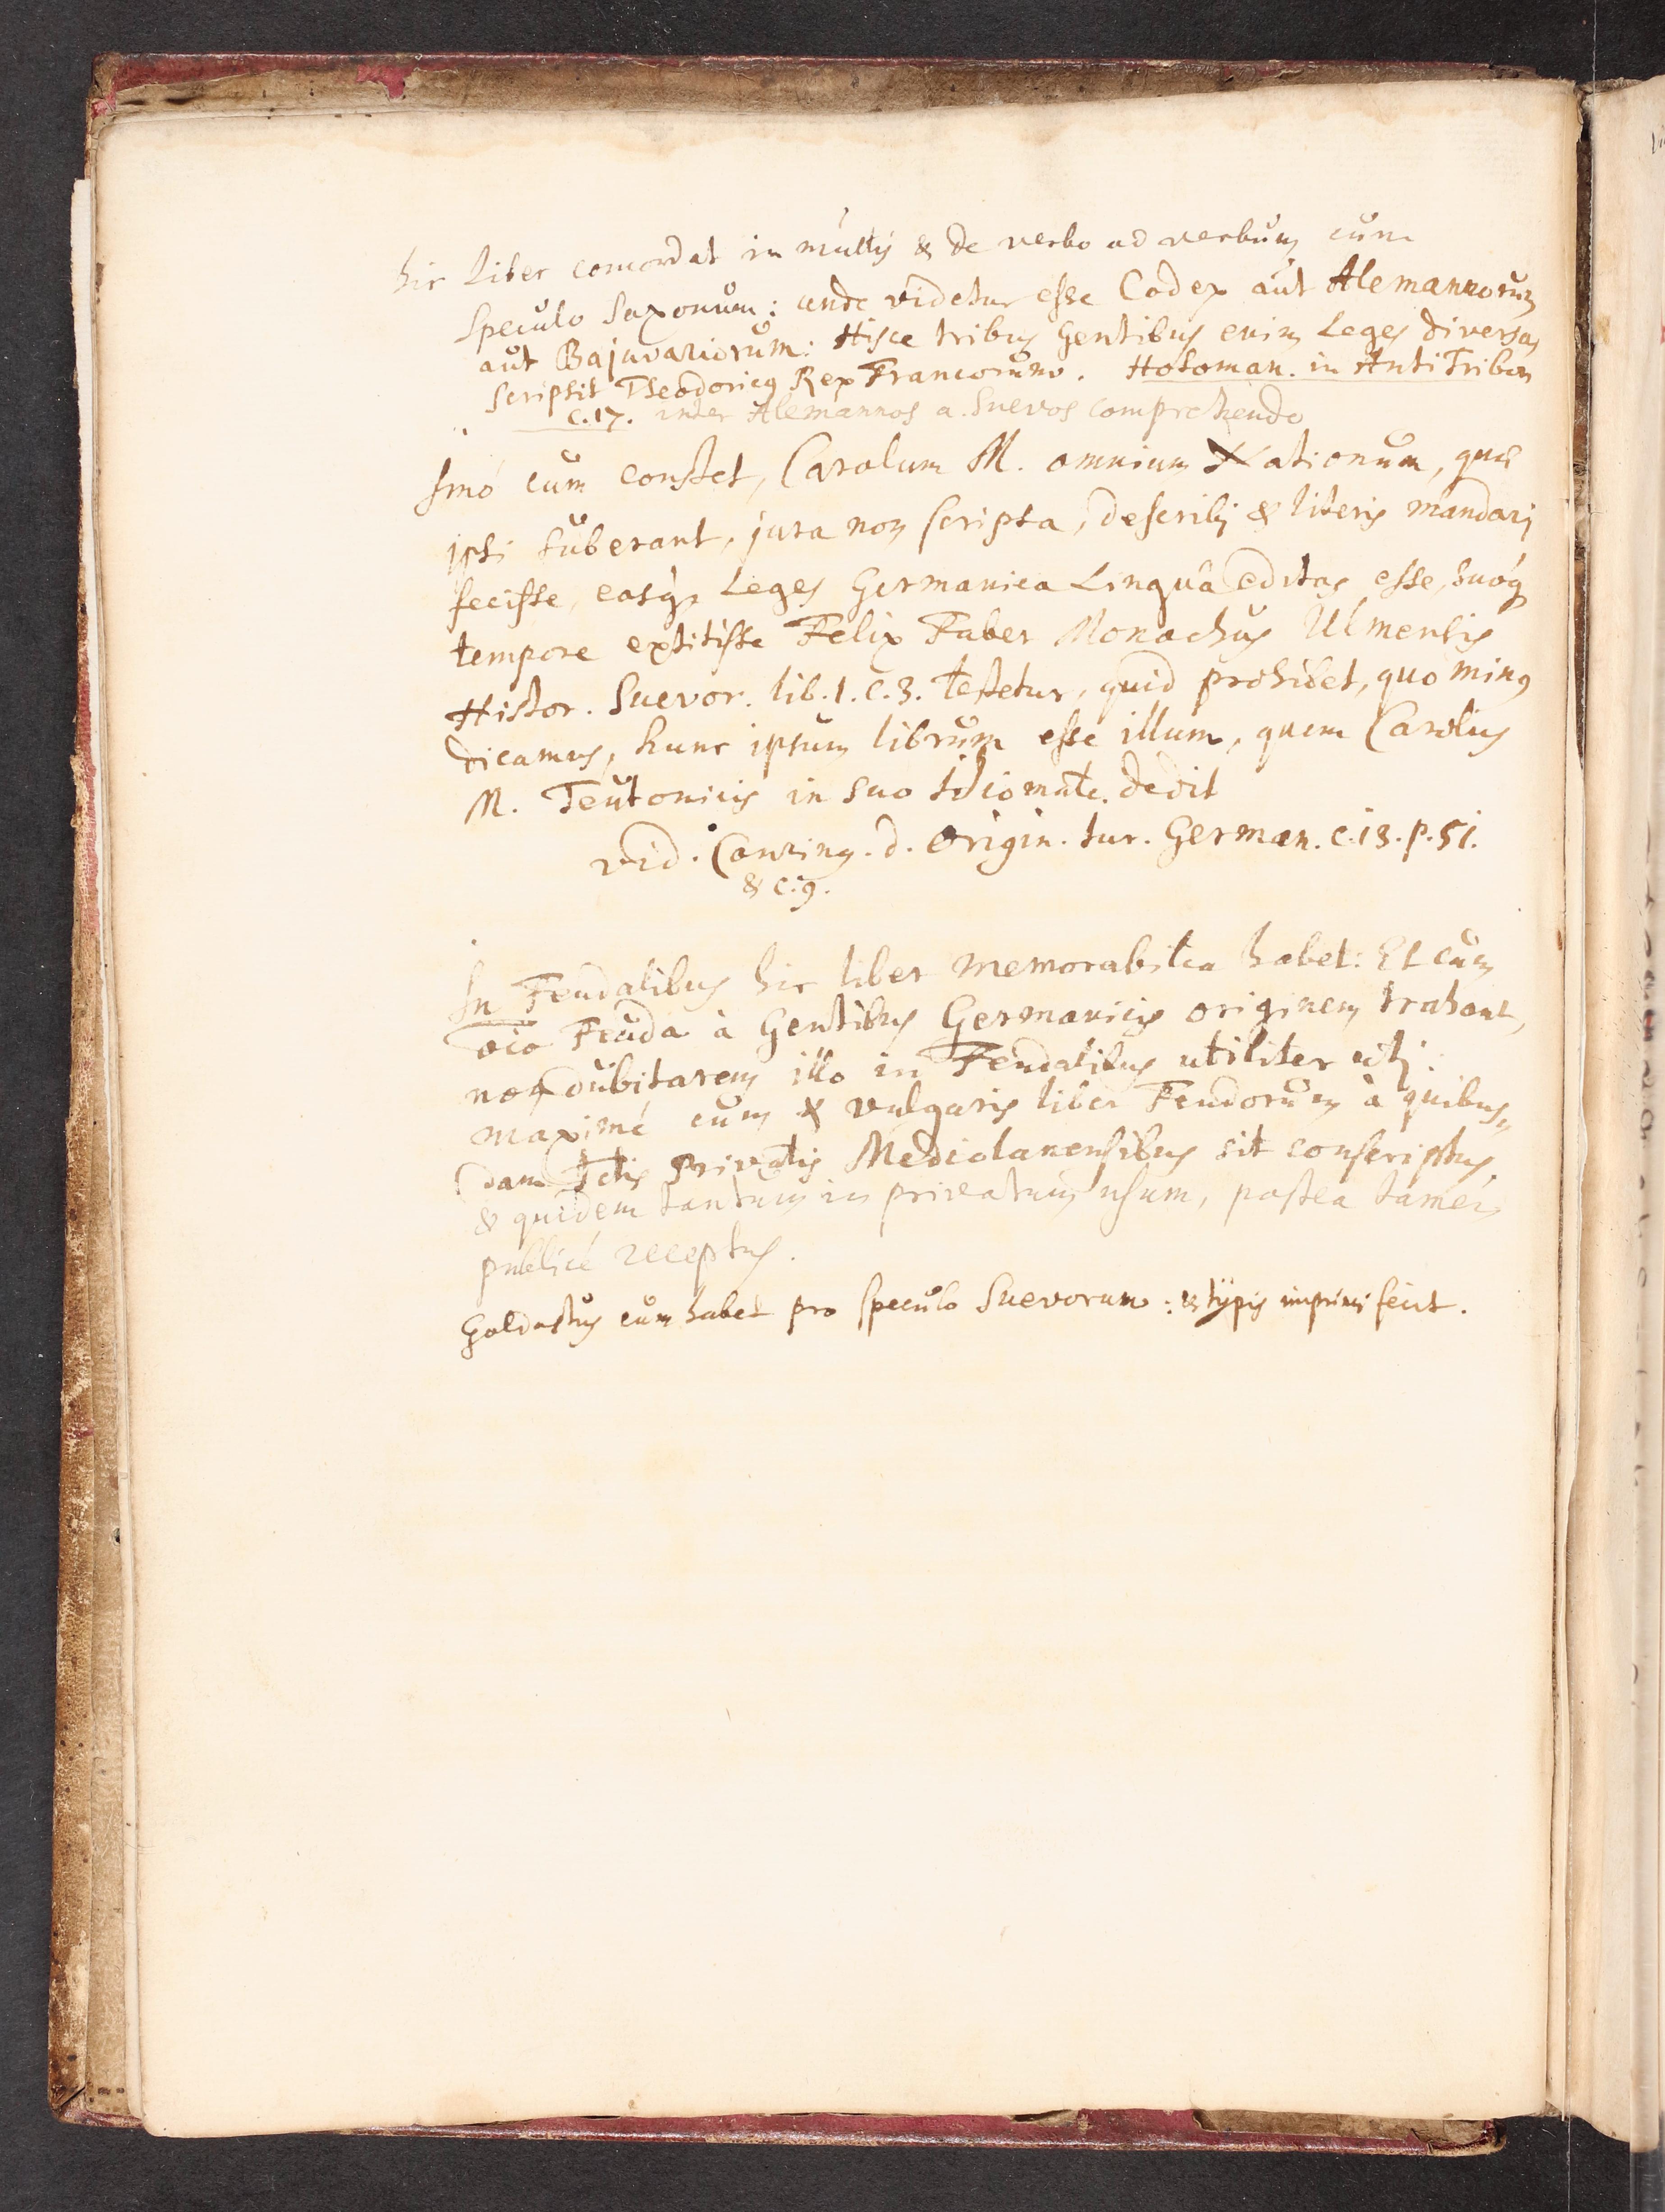 hic liber concordat in multis & de verbo ad verbum cum
Speculo Saxonum: unde videtur esse Codex aut Alemannorum
aut Bajuvariorum: Hisce tribus Gentibus enim Leges diversas
scripsit Theodoricus Rex Francorum. Hotoman. in AntiTribon
c.17. inter Alemannos a. Suevos comprehendo
Imò cum constet, Carolum M. omnium Nationum, quæ
ipsi suberant, jura non scripta, describi & literis mandari
fecisse, easq. Leges Germanica Linguâ editas esse, suóq
tempore extitisse Felix Faber Monachus Ulmensis
Histor. Suevor. lib.1.c.3. testetur, quid prohibet, quo minus
dicamus, hunc ipsum librum esse illum, quem Carolus
M. Teutonicis in suo Idiomate dedit
vid. Conring. d. Origin. Iur. German. c.13.p.51.
& c.9.
In Feudalibus hic liber memorabilia habet: Et cum
oia Feuda à Gentibus Germanicis originem trahant,
non dubitarem illo in Feudalibus utiliter uti:
maximè cum & vulgaris liber Feudorum à quibus,,
dam Ictis Privatis Mediolanensibus sit conscriptus,
& quidem tantum in privatum usum, postea tamen
publicè receptus.
Goldastus eum habet pro Speculo Suevorum: & typis imprimi fecit.